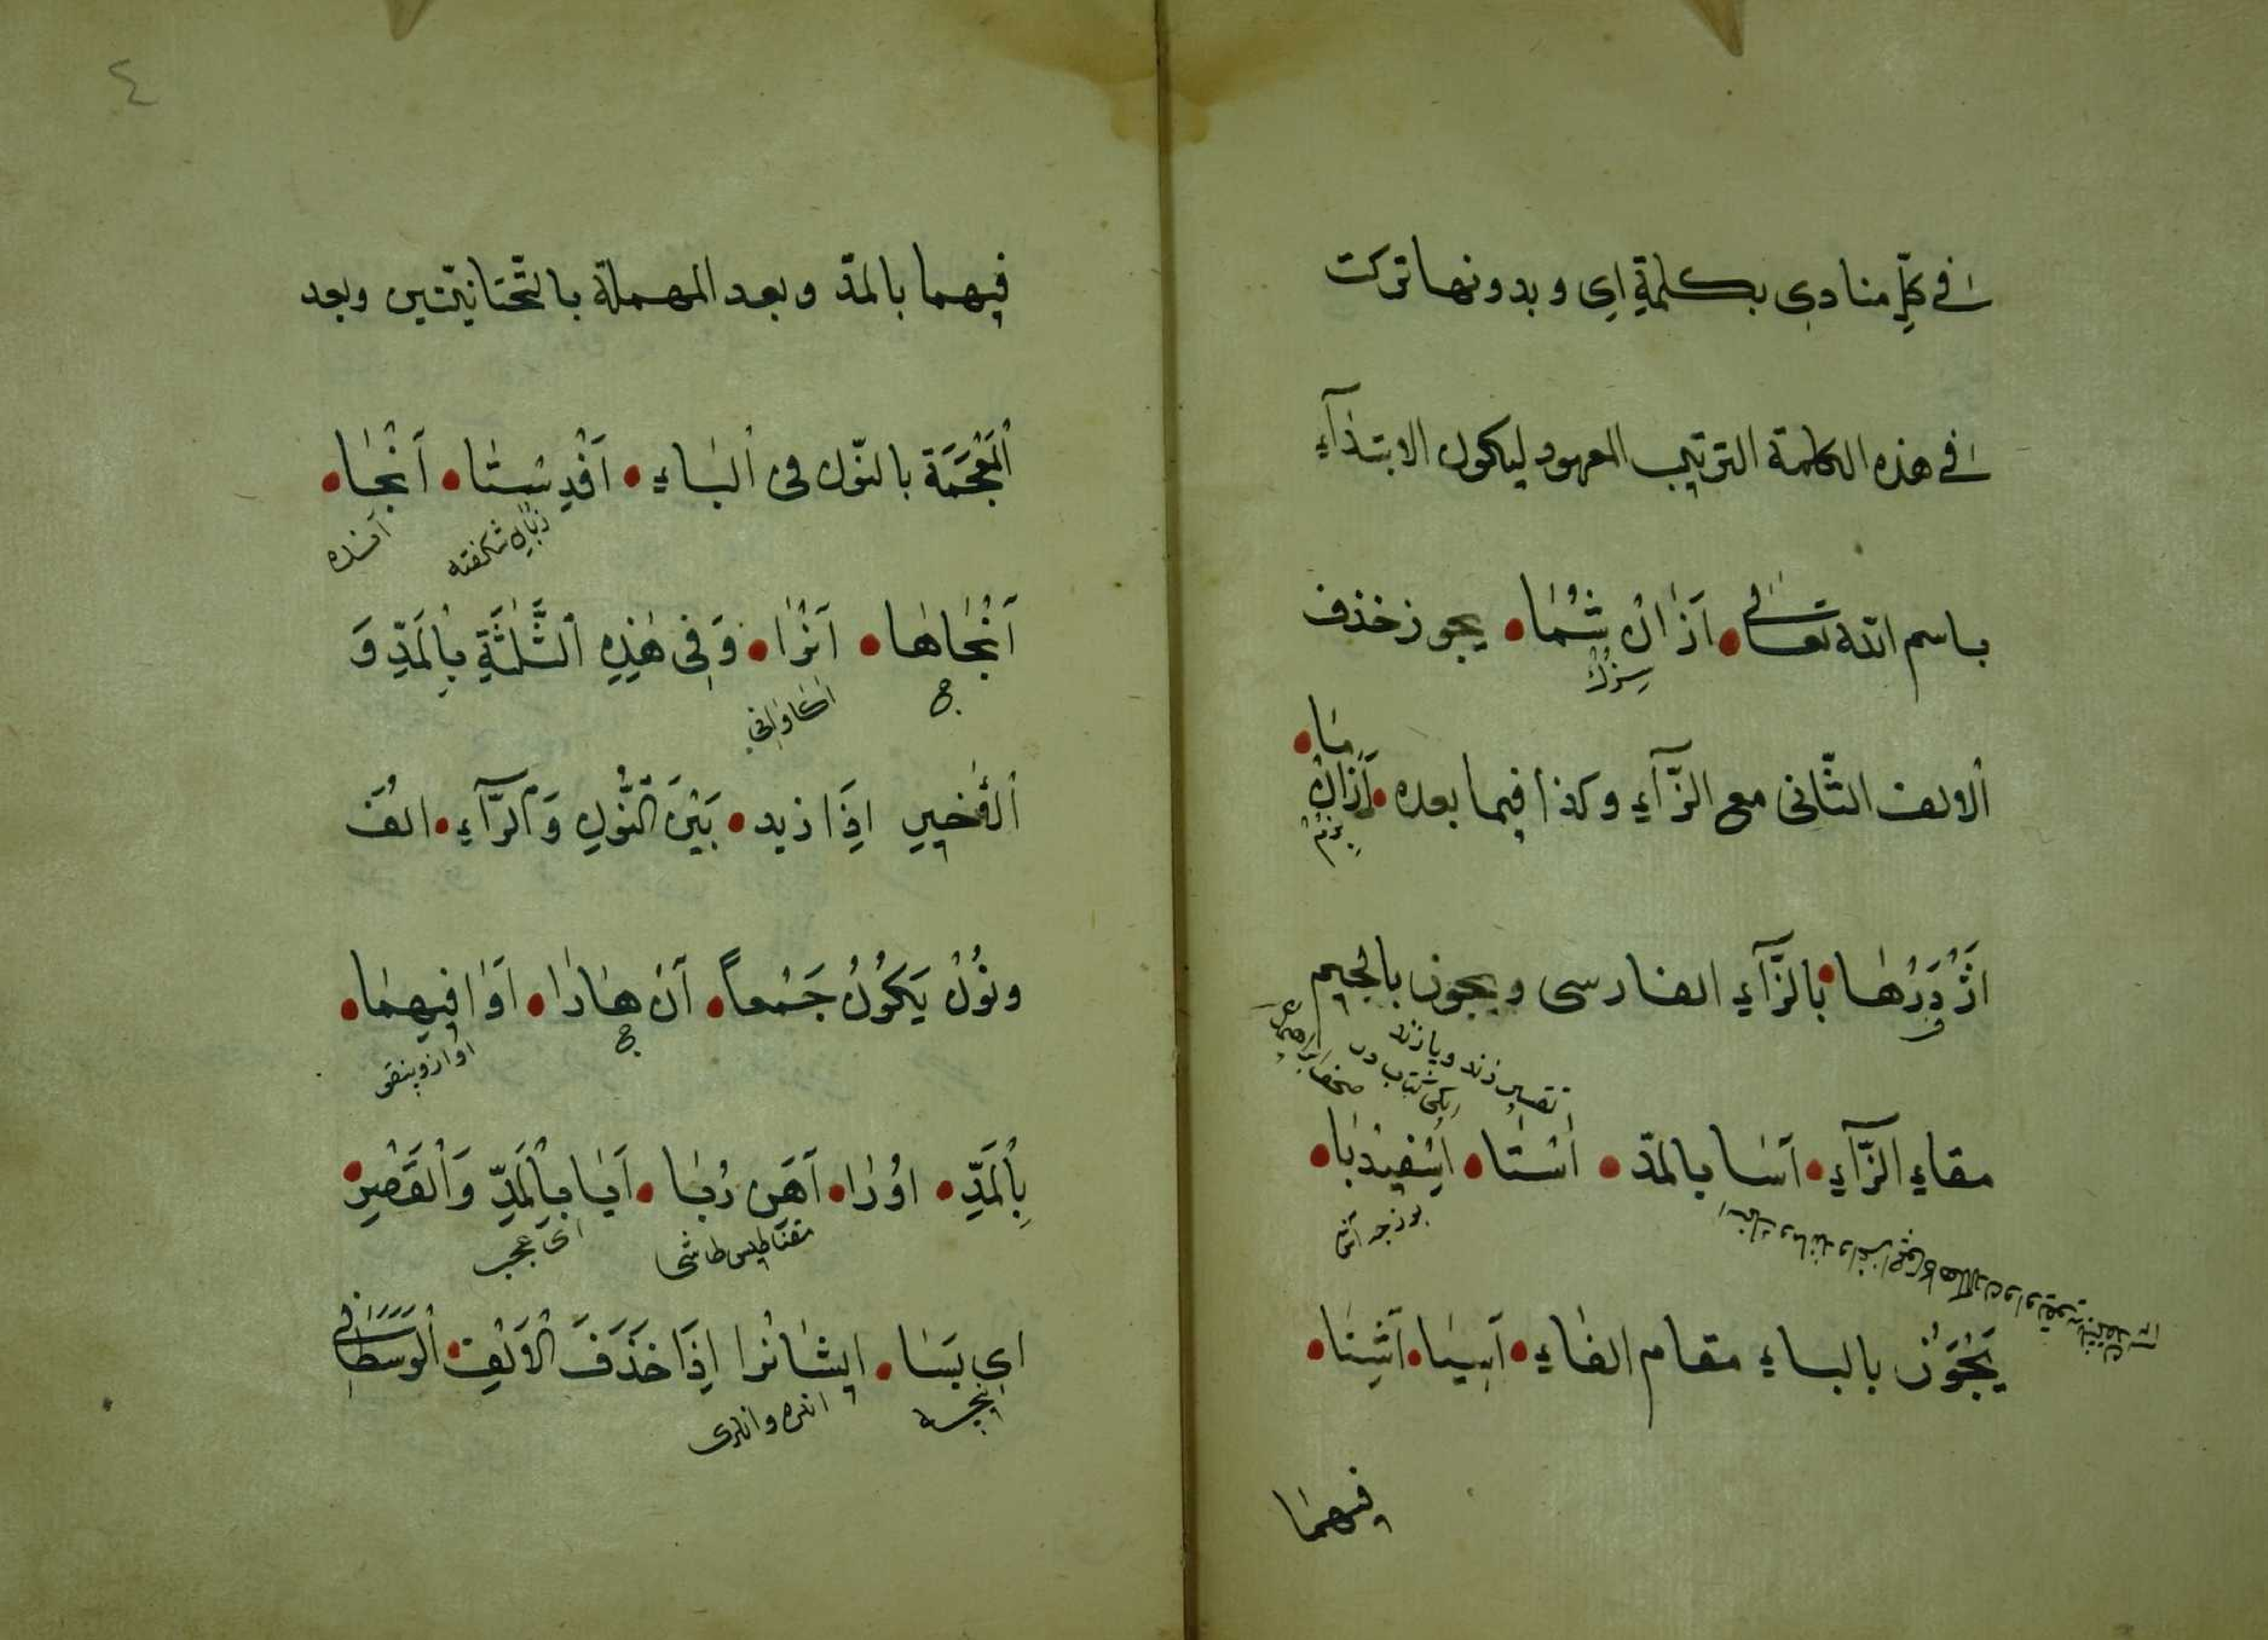 فى كلّ منادى بكلمةِ اى وبدونها تركت
فى هذه الكلمة الترتيب المعهود ليكون الابتدآءِ
باسم الله تعالى • اَذَانْ شُمَا • يجوز حذف
سزدن
الالف الثّانى مع الزَّآءِ وكذا فيما بعده • اَزَانْ
مَا •
بزدن
اَژْدَرْهَا • بالزَّآءِ الفارسى ويجوز بالجيم
تفسير زند و پازند
مقام الزَّآءِ • آسَا بالمدّ • اُسْتَا • اِسْفِيدْبَا •
يَجُوزُ بالباء مقام الفاءِ • آسِيَا • آشِنَا •
فيهما
٤
فيهما بالمدّ وبعد المهملة بالتّحتانيّتين وبعد
اَلْمُعْجَمَة بالنّون فى اليَاءِ • اَفْدِسْتَا • آنْجَا •
شكفته
آنْجَاهَا • آنْرَا • وَفِى هٰذِهِ الثَّلٰثَةِ بِالْمَدِّ وَ
الْأَخِيرِ اِذَا زيد • بَيْنَ النُّونِ وَالرَّآءِ • الف
ونُونْ يَكُونُ جَمْعاً • آنْ هَارَا • آوَا فِيهِمَا •
بِالْمَدِّ • اوُرَا • آهَنْ رُبَا • آيَا بِالْمَدِّ وَالْقَصْرِ •
مقناطيس طاشى
اى عجب
اى بَسَا • ايشَانْرا اِذَا حَذَفَ الْاَلِفِ • الْوَسَطَانِى
انلره وانلرى